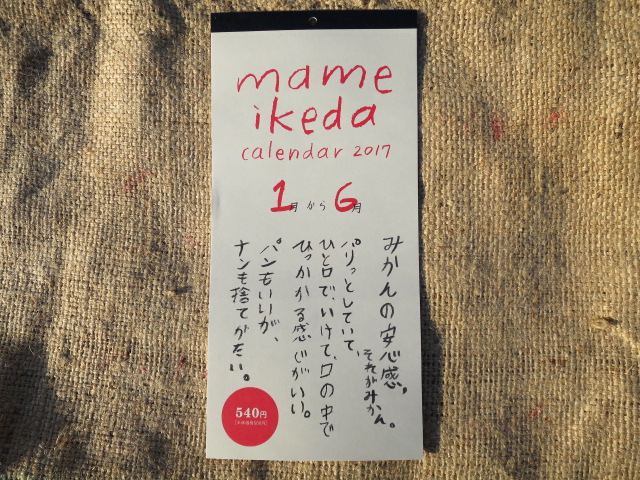 mame
ikeda
calendar 2017
1月から6月
みかんの安心感,
それがみかん。
パリっとしていて、
ひと口で、いけて、口の中で
ひっかかる感じがいい。
パンもいいが、
ナンも捨てがたい。
540円